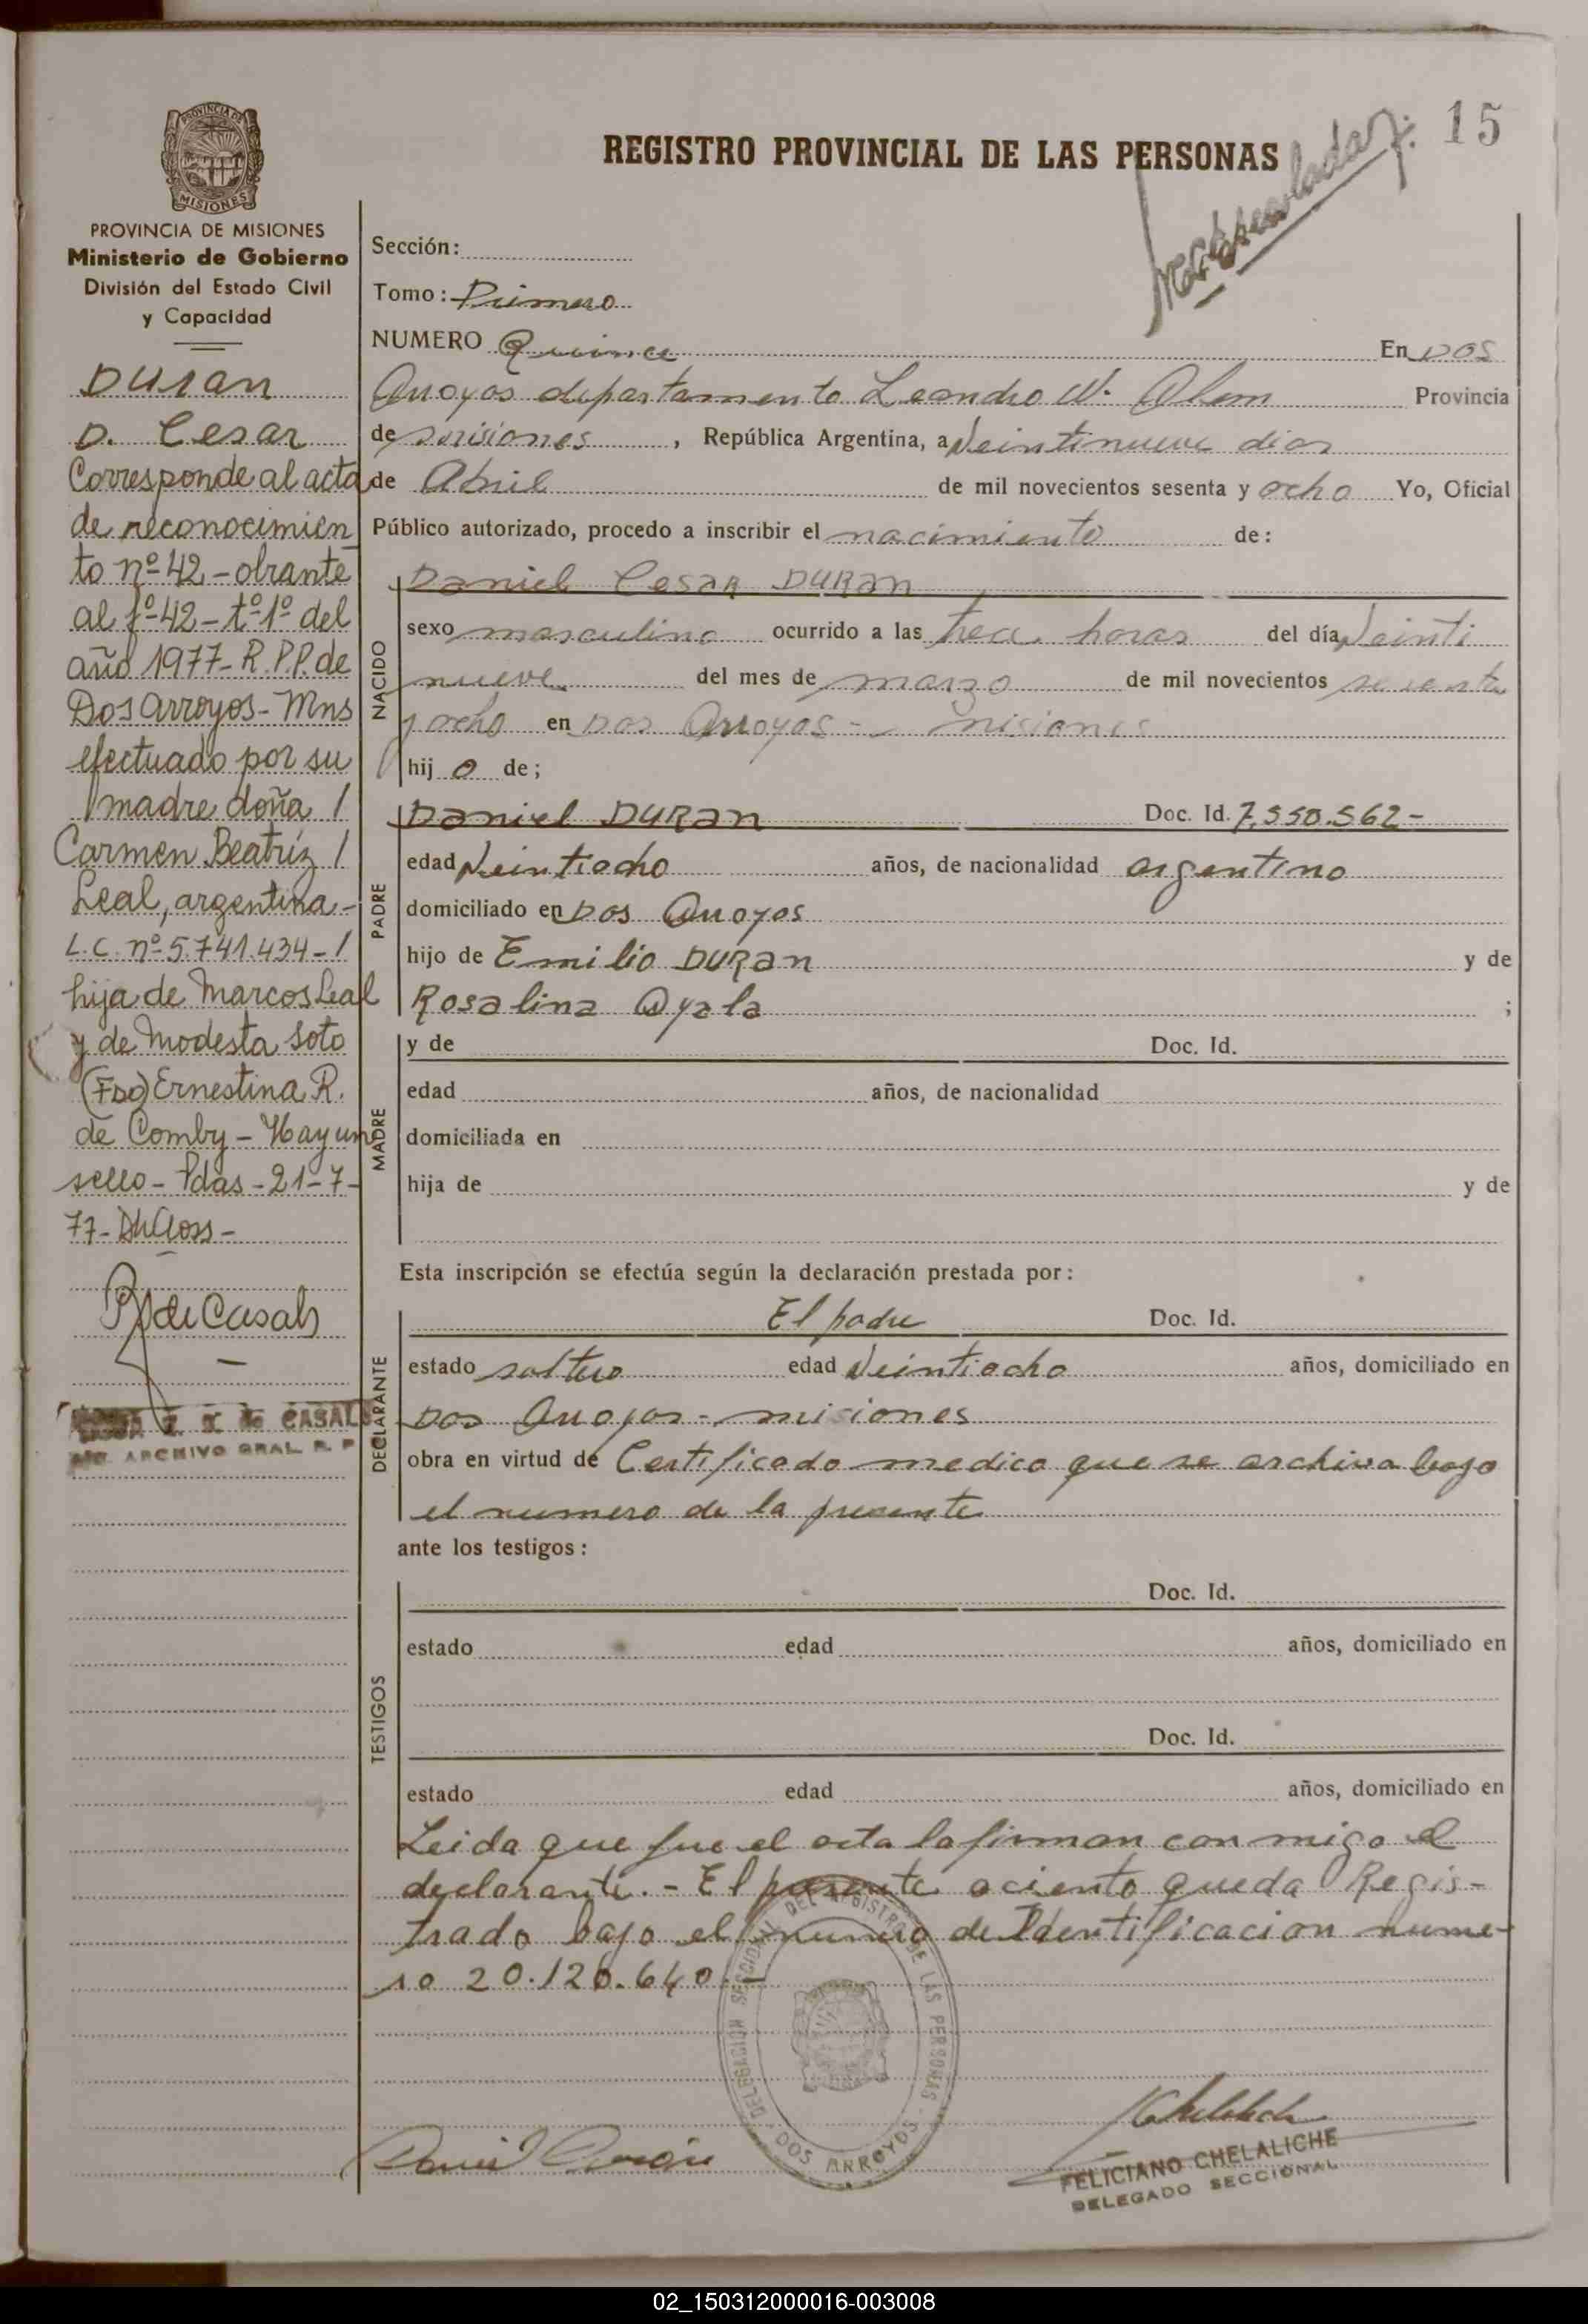 15
REGISTRO PROVINCIAL DE LAS PERSONAS
PROVINCIA DE
MISIONES
PROVINCIA DE MISIONES
Ministerio de Gobierno
División del Estado Civil
y Capacidad
DURAN
D. Cesar
Corresponde al acta
de reconocimien
to nº 42 - obrante
al fº 42 - tº 1º del
año 1977 - R.P.P. de
Dos Arroyos - Mns
efectuado por su
madre doña /
Carmen Beatríz /
Leal, argentina -
L.C. nº 5.741.434 - /
hija de Marcos Leal
y de Modesta Soto
(Fdo) Ernestina R.
de Comby - Hay un
sello - Pdas - 21-7-
77 -
de Casals
de CASALS
ARCHIVO GRAL. R. P
Sección:
Tomo: Primero
NUMERO Quince En Dos
Arroyos departamento Leandro N. Alem Provincia
de Misiones, República Argentina, a Veintinueve dias
de Abril de mil novecientos sesenta y ocho Yo, Oficial
Público autorizado, procedo a inscribir el nacimiento de:
NACIDO
Daniel Cesar DURAN
sexo masculino ocurrido a las trece horas del día Veinti
nueve del mes de marzo de mil novecientos sesenta
y ocho en Dos Arroyos - misiones
hij o de;
PADRE
Daniel DURAN Doc. Id. 7.550.562-
edad Veintiocho años, de nacionalidad argentino
domiciliado en Dos Arroyos
hijo de Emilio DURAN y de
Rosalina Ayala ;
MADRE
y de Doc. Id.
edad años, de nacionalidad
domiciliada en
hija de y de
Esta inscripción se efectúa según la declaración prestada por:
DECLARANTE
El padre Doc. Id.
estado soltero edad Veintiocho años, domiciliado en
Dos Arroyos - misiones
obra en virtud de Certificado medico que se archiva bajo
el numero de la presente
ante los testigos:
TESTIGOS
Doc. Id.
estado edad años, domiciliado en
Doc. Id.
estado edad años, domiciliado en
Leida que fue el acta la firman conmigo el
declarante. - El presente aciento queda Regis-
trado bajo el numero de Identificacion nume-
ro 20.120.640.-
DELEGACION SECCIONAL DEL REGISTRO DE LAS PERSONAS - DOS ARROYOS
Daniel Duran
FELICIANO CHELALICHE
DELEGADO SECCIONAL
02_150312000016-003008